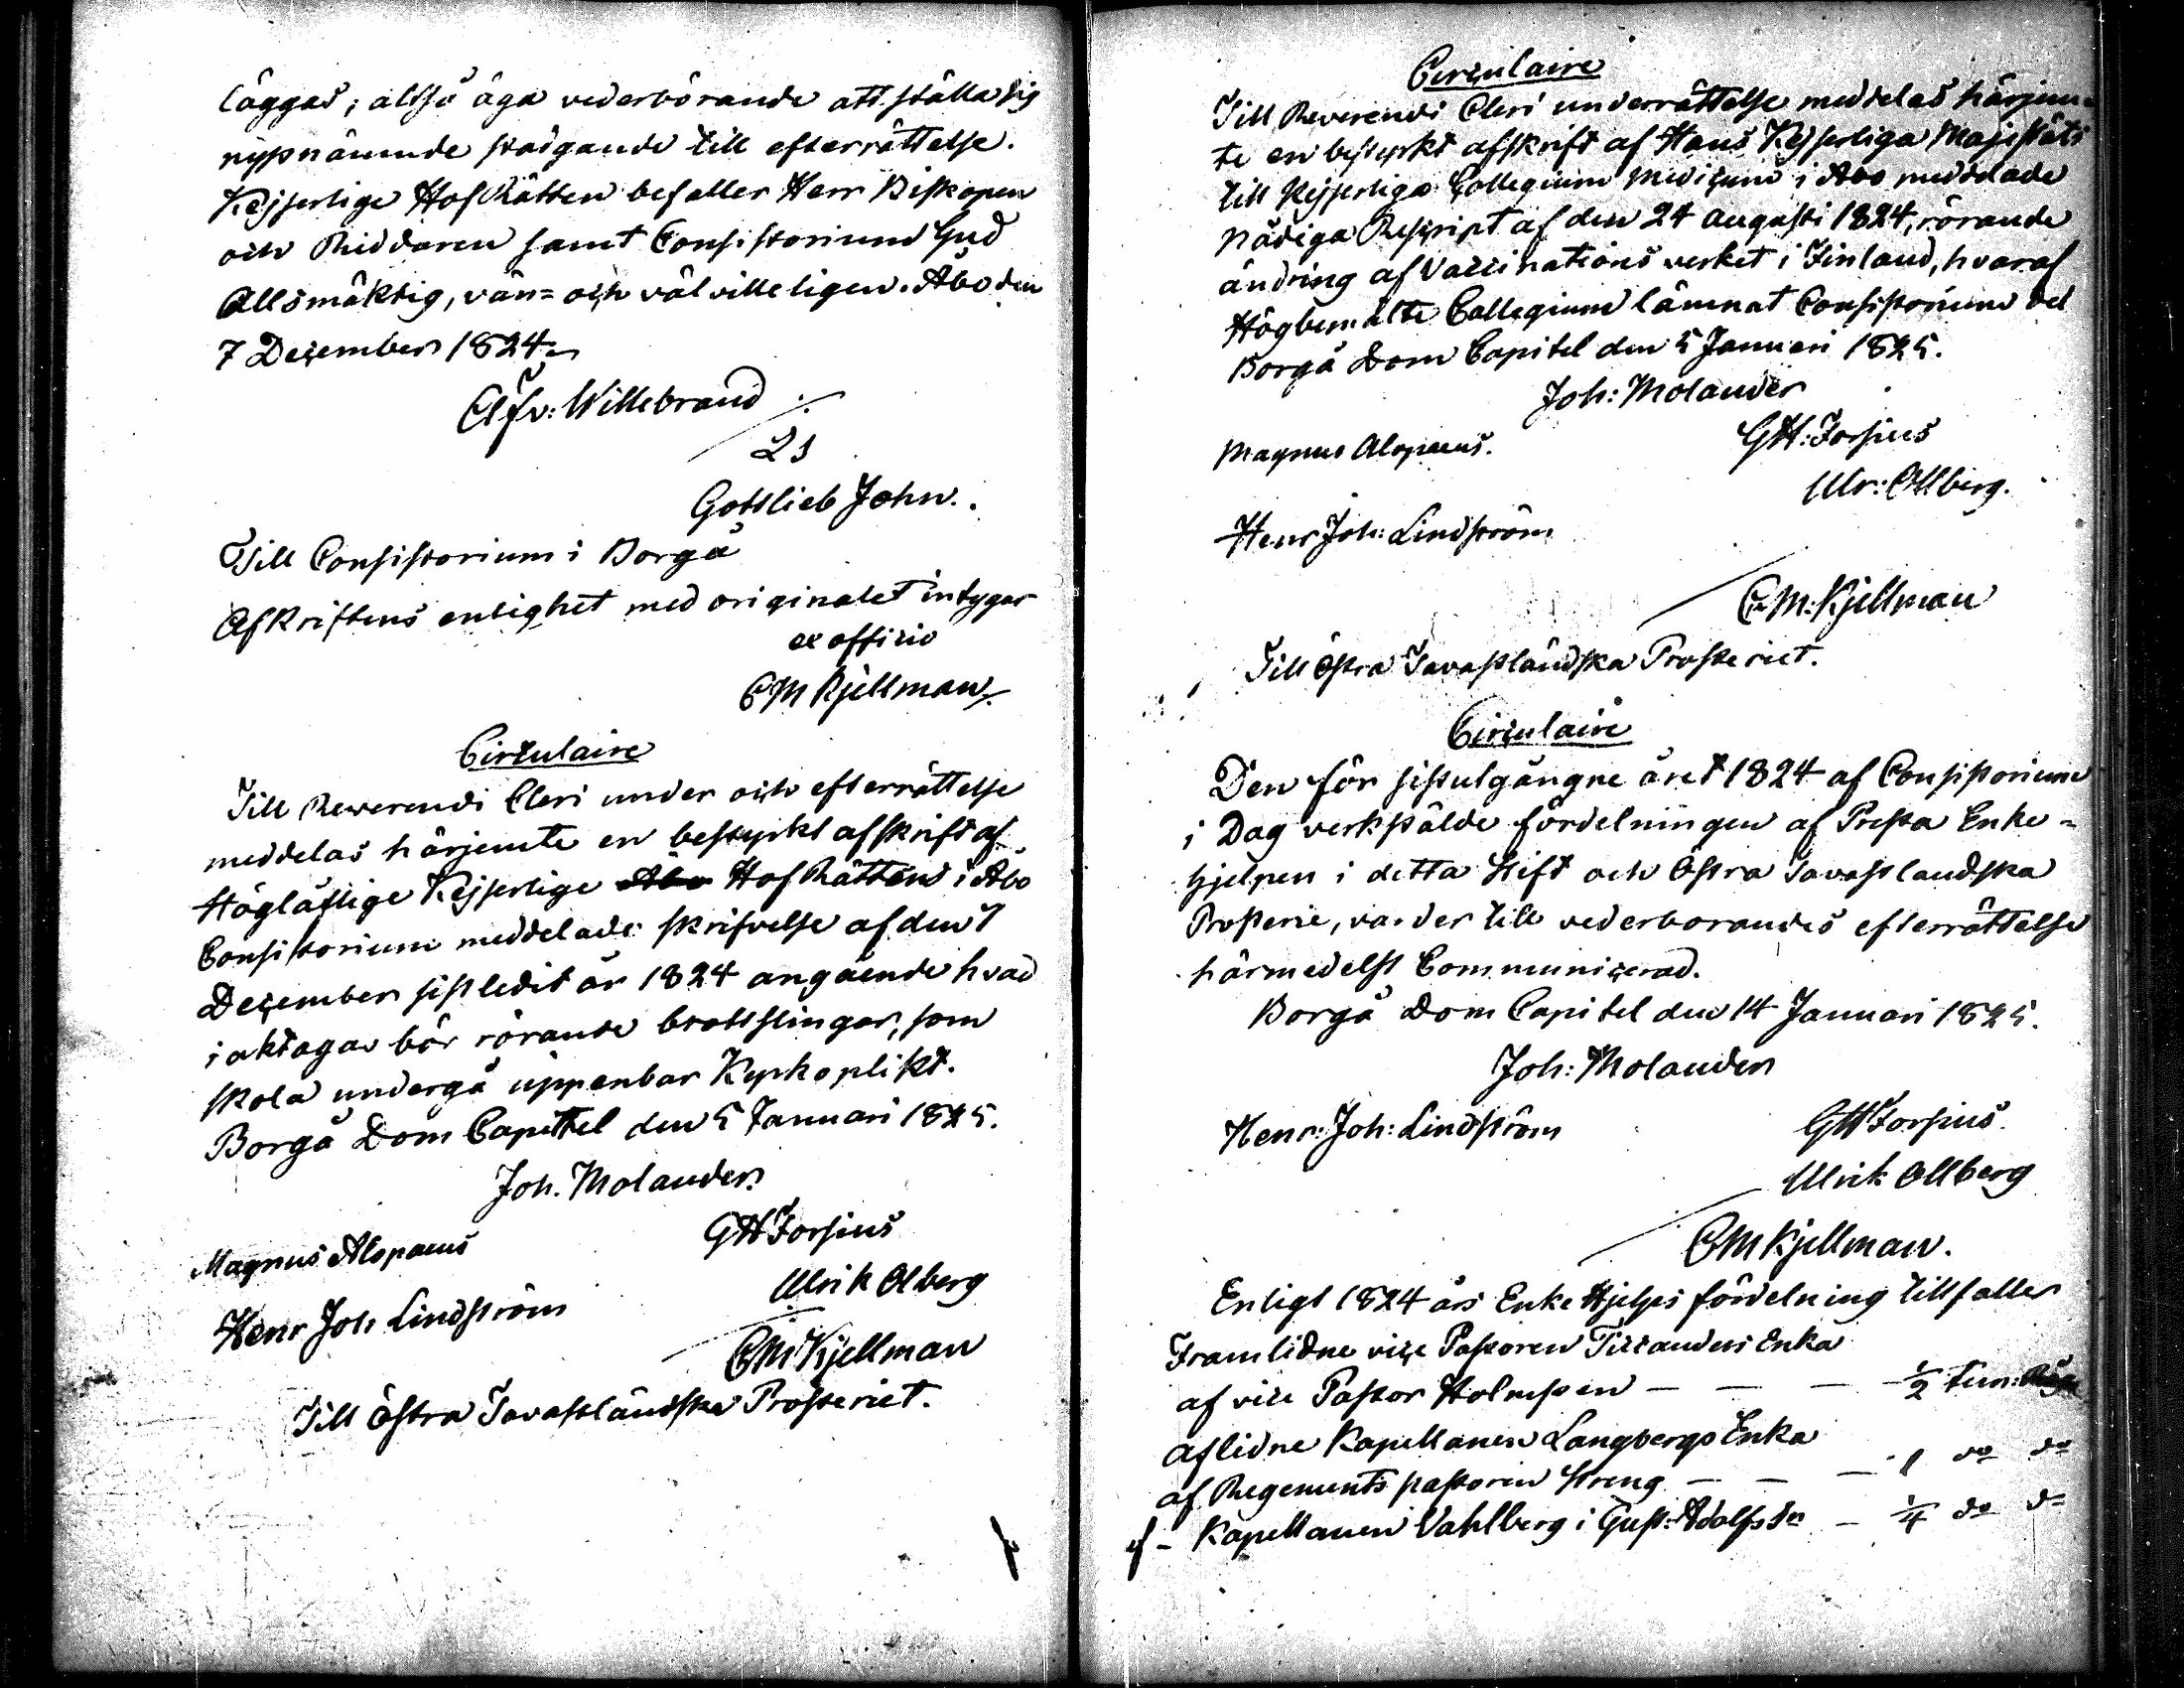 läggas; altså äga vederbörande att ställa sig
nyssnämnde stadgande till efterrättelse.
Kejserlige HofRätten befaller Herr Biskopen
och Riddaren samt Consistorium Gud
Allsmäktig, vän= och välvilleligen. Åbo den
7 December 1824.
Willebrand
Gottlieb John.
Till Consistorium i Borgå
Afskriftens enlighet med originalet intygar
ex officio
CM Kjellman
Circulaire
Till Reverendi Cleri under och efterrättelse
meddelas härjemte en bestyrkt afskrift af
Höglåflige Kejserlige Åbo HofRätten i Åbo
Consistorium meddelade skrifvelse af den 7
December sistledit år 1824 angående hvad
iakttagas bör rörande brottslingar, som
skola undergå uppenbar Kyrkoplikt.
Borgå Dom Capittel den 5 Januari 1825.
Joh. Molander
Magnus Alopaeus
GH Forsius
Henr Joh Lindström
Ulrik Alberg
CM Kjellman
Till Östra Tavastländska Prosteriet.
Circulaire
Till Reverendi Cleri underrättelse meddelas härjem-
te en bestyrkt afskrift af Hans Kejserliga Majestäts
till Kejserliga Collegium Medicum i Åbo meddelade
Nådiga Rescript af den 24 augusti 1824, rörande
ändring af Vaccinations verket i Finland, hvaraf
Högbemälte Collegium lämnat Consistorium del
Borgå Dom Capitel den 5 Januari 1825.
Joh: Molander
Magnus Alopaeus.
GH: Forsius
Ulr: Ahlberg.
Henr Joh: Lindström
CM: Kjellman
Till Östra Tavastländska Prosteriet.
Circulaire
Den för sistutgångne året 1824 af Consistorium
i Dag verkstälde fördelningen af Presta Enke=
hjelpen i detta Stift och Östra Tavastlandska
Prosterie, varder till vederborandes efterrättelse
härmedelst Communicerad.
Borgå Dom Capitel den 14 Januari 1825.
Joh: Molander
Henr: Joh: Lindström
GH Forsius.
Ulrik Ahlberg
CM Kjellman.
Enligt 1824 års Enke Hjelps fördelning tillfaller
Framlidne vice Pastoren Enka
af vice Pastor Holmsten — — — ½ tun: Råg
aflidne Kapellanen Langbergs Enka
af Regements pastoren Streng — — — 1 do do
af - Kapellanen Vahlberg i Gust: Adolfs Sn — ¼ do do